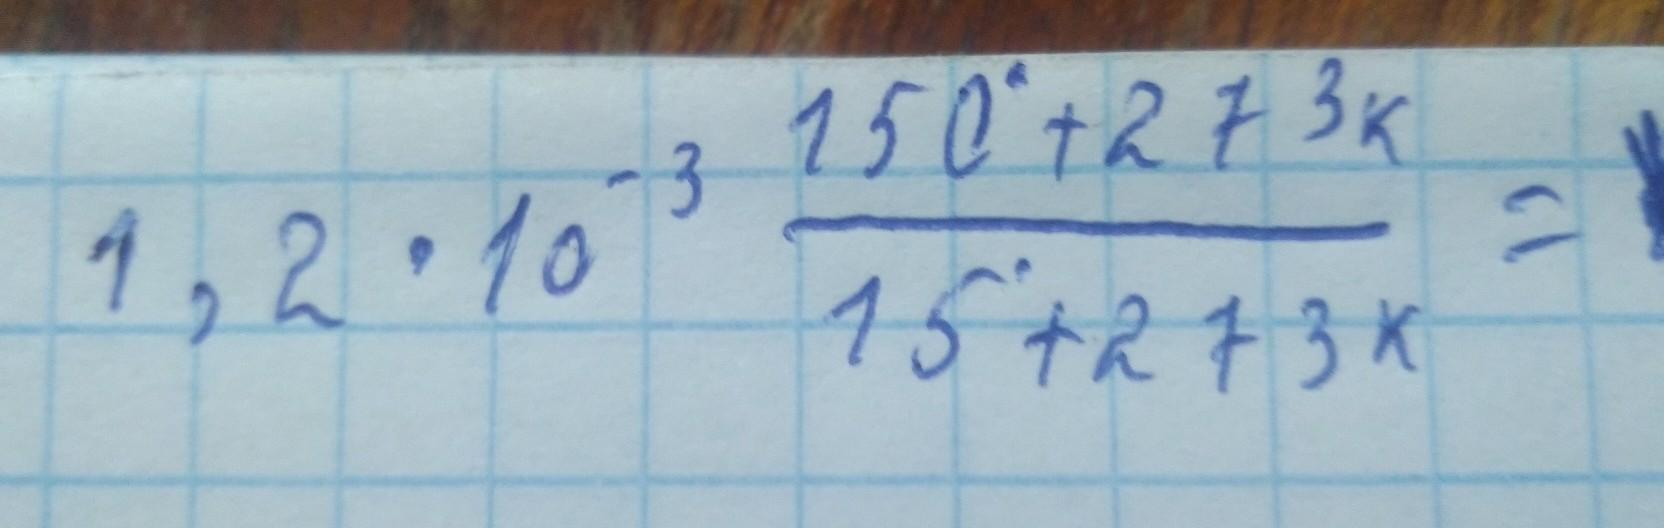 1,2 · 10⁻³ (150° + 273к) / (15° + 273к) =